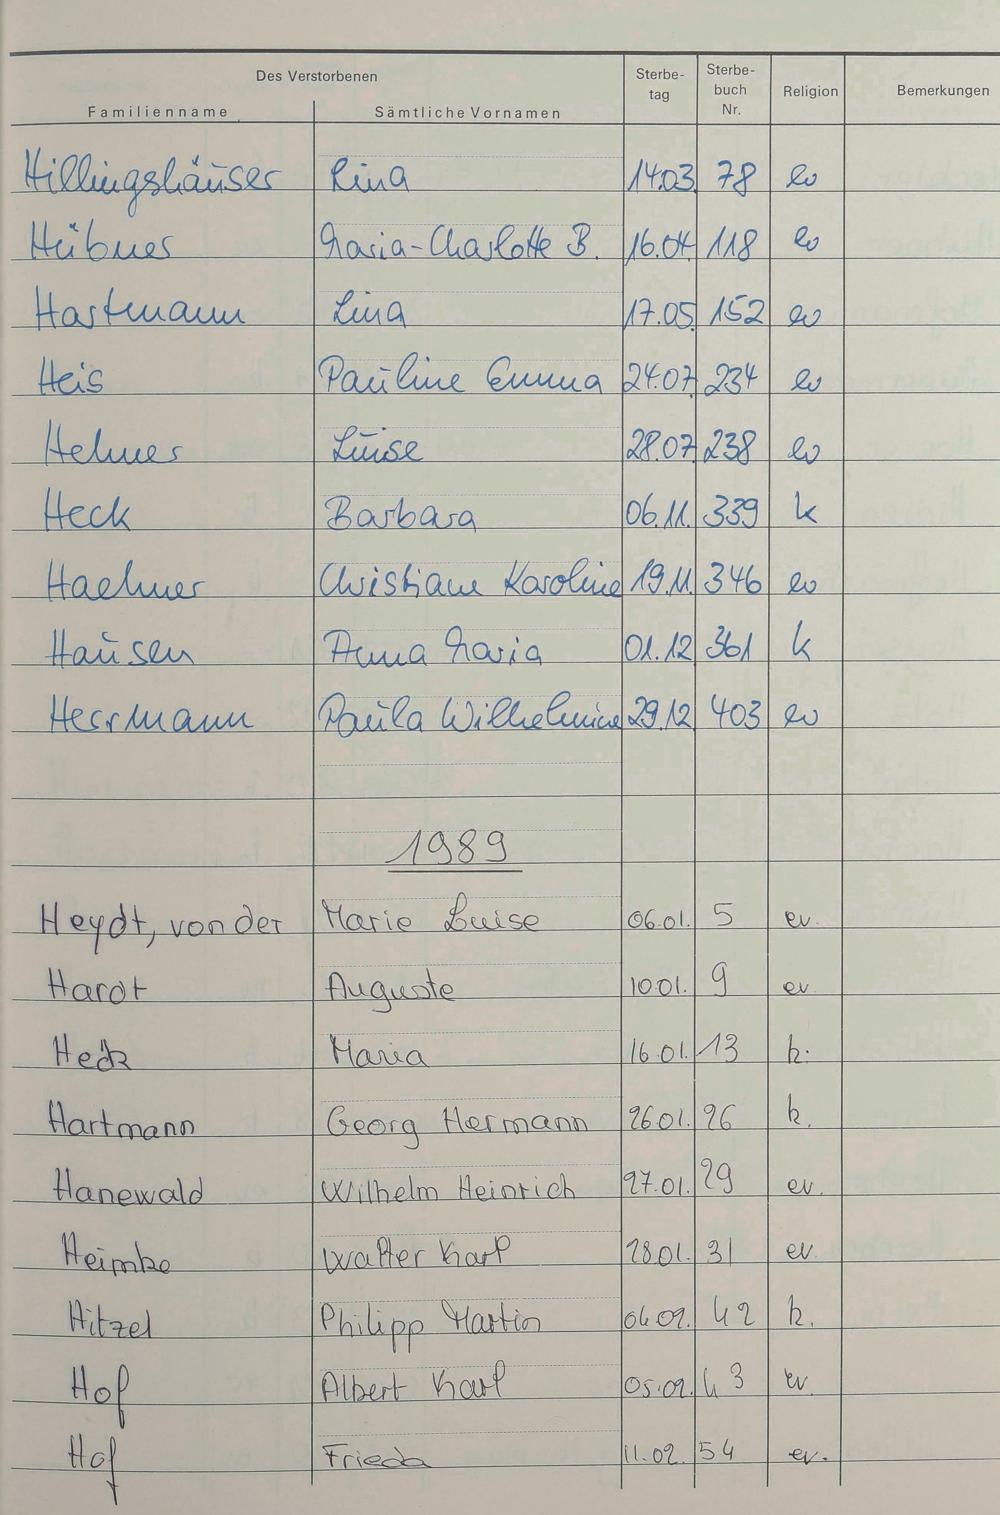 Des Verstorbenen
Familienname Sämtliche Vornamen Sterbe-tag Sterbe-buch Nr. Religion Bemerkungen
Hillingshäuser Lina 14.03 78 ev
Hübner Maria-Charlotte B. 16.04 118 ev
Hartmann Lina 17.05 152 ev
Heis Pauline Emma 24.07 234 ev
Helmer Luise 28.07 238 ev
Heck Barbara 06.11. 339 k
Haehner Christiane Karoline 19.11. 346 ev
Hausen Anna Maria 01.12 361 k
Herrmann Paula Wilhelmine 29.12 403 ev
1989
Heydt, von der Marie Luise 06.01. 5 ev.
Hardt Auguste 10.01. 9 ev
Heck Maria 16.01. 13 k.
Hartmann Georg Hermann 26.01. 26 k.
Hanewald Wilhelm Heinrich 27.01. 29 ev.
Heimke Walter Karl 28.01. 31 ev
Hitzel Philipp Martin 04.02. 42 k.
Hof Albert Karl 05.02. 43 ev.
Hof Frieda 11.02. 54 ev.